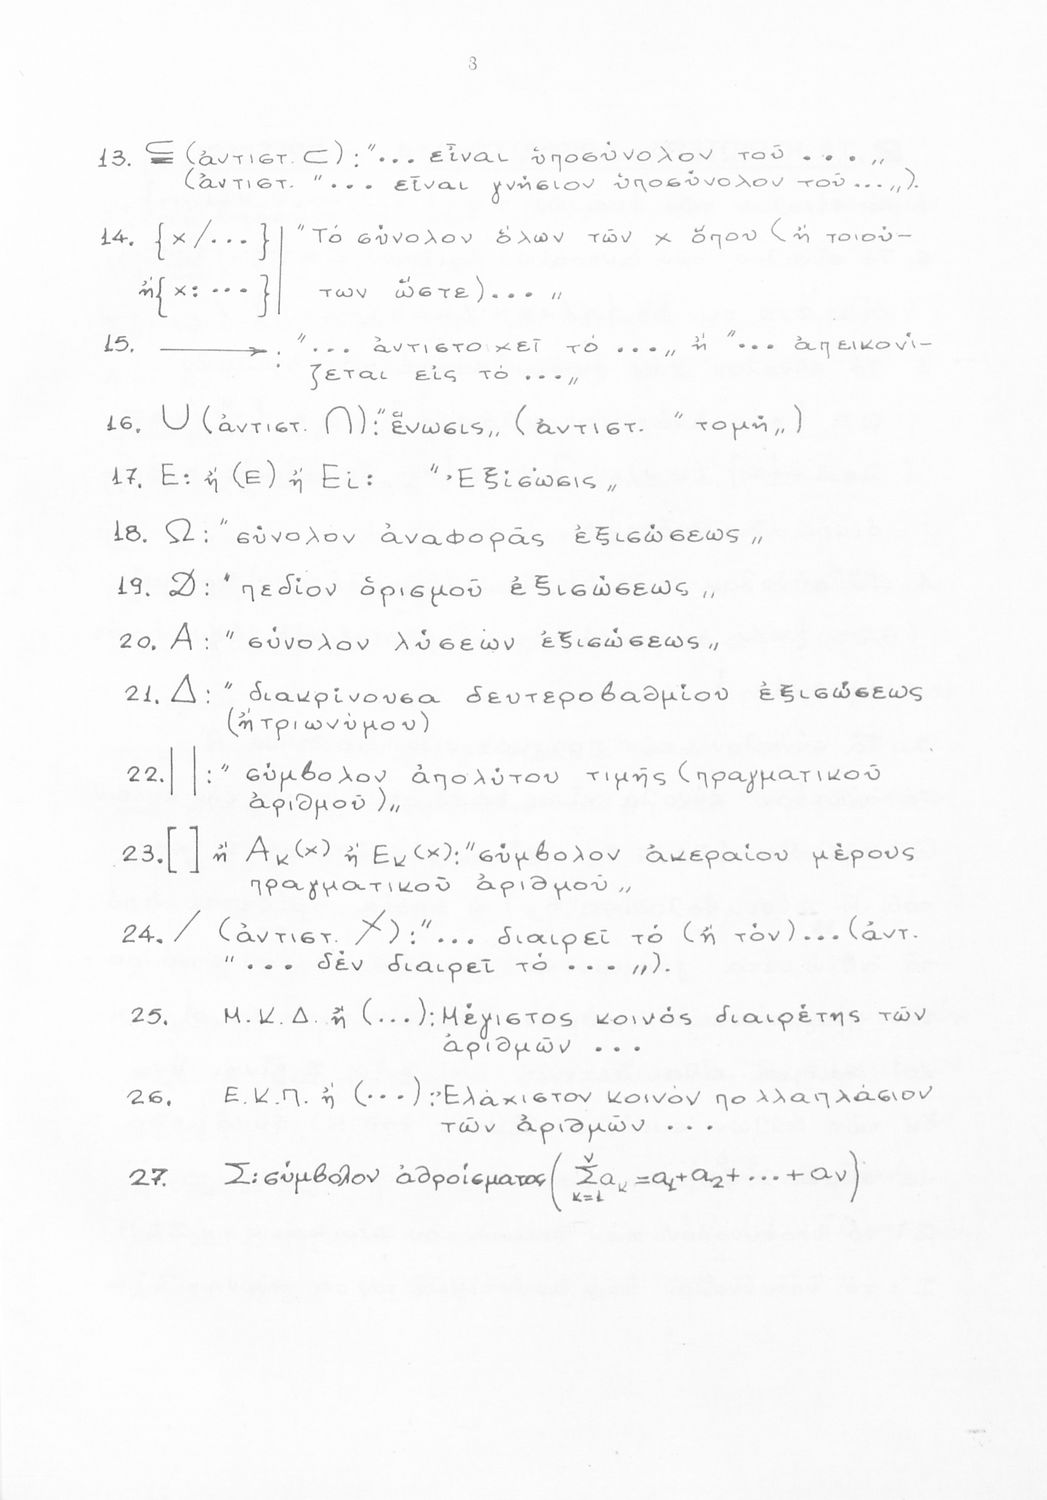 3
13. ⊆ (ἀντιστ. ⊂) : "... εἶναι ὑποσύνολον τοῦ ....„
(ἀντιστ. "... εἶναι γνήσιον ὑποσύνολον τοῦ ...„).
14. {x/...} "Τό σύνολον ὅλων τῶν x ὅπου (ἤ τοιού-
ἤ{x: ...} των ὥστε)...„
15. ⟶ : "... ἀντιστοχεῖ τό ...„ ἤ "... ἀπεικονί-
ζεται εἰς τό ...„
16. ∪ (ἀντιστ. ∩): "ἕνωσις„ (ἀντιστ. "τομή„)
17. Ε: ἤ (Ε) ἤ Εi: "Ἐξίσωσις„
18. Ω: "σύνολον ἀναφορᾶς ἐξισώσεως„
19. D: "πεδίον ὁρισμοῦ ἐξισώσεως„
20. Α: "σύνολον λύσεων ἐξισώσεως„
21. Δ: "διακρίνουσα δευτεροβαθμίου ἐξισώσεως
(ἤ τριωνύμου)
22. | |: "σύμβολον ἀπολύτου τιμῆς (πραγματικοῦ
ἀριθμοῦ)„
23. [ ] ἤ Aκ(x) ἤ Eκ(x): "σύμβολον ἀκεραίου μέρους
πραγματικοῦ ἀριθμοῦ„
24. / (ἀντιστ. ∤): "... διαιρεῖ τό (ἤ τόν)... (ἀντ.
"... δέν διαιρεῖ τό ...„).
25. Μ.Κ.Δ. ἤ (...): Μέγιστος κοινός διαιρέτης τῶν
ἀριθμῶν ...
26. Ε.Κ.Π. ἤ (...): Ἐλάχιστον κοινόν πολλαπλάσιον
τῶν ἀριθμῶν ...
27. Σ: σύμβολον ἀθροίσματος (ν Σ κ=1 aκ = a1+a2+...+aν)